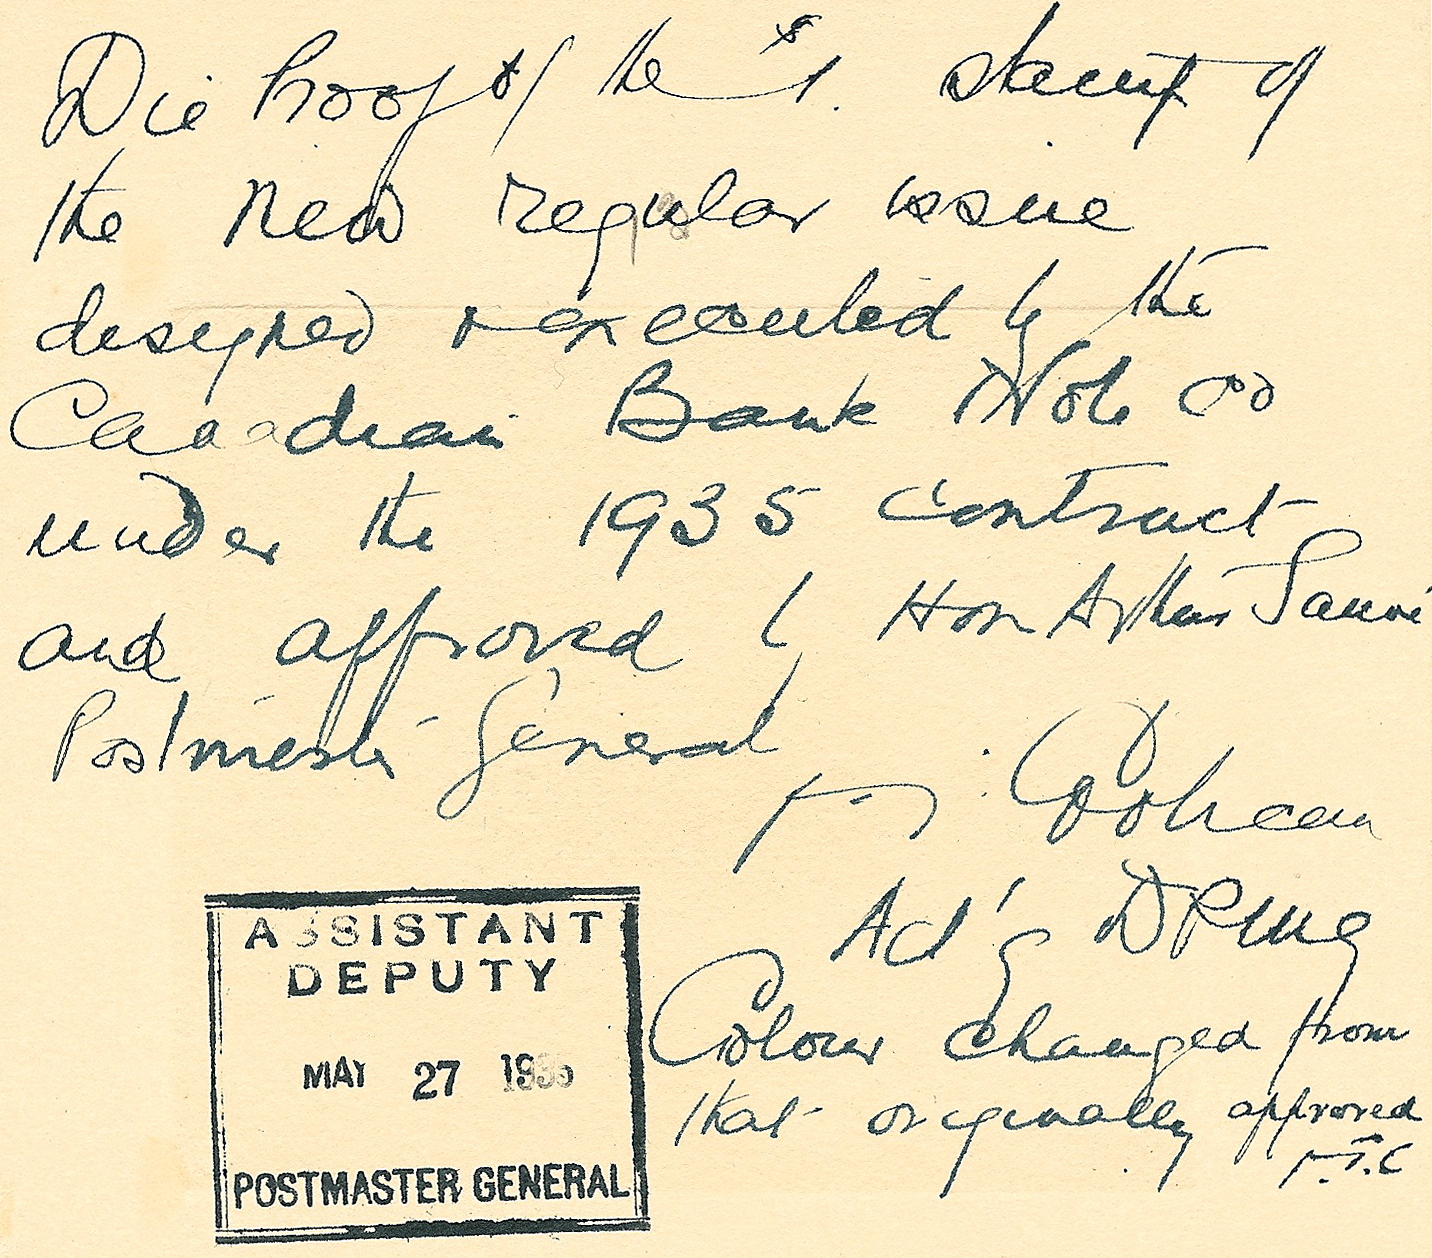 Die Proof of the $1. stamp of
the new regular issue
designed & executed by the
Canadian Bank Note Co
under the 1935 contract
and approved by Hon Arthur Sauvé
Postmaster General
Coolican
Act'g DPMG
Colour changed from
that originally approved
ASSISTANT
DEPUTY
MAY 27 1935
POSTMASTER GENERAL